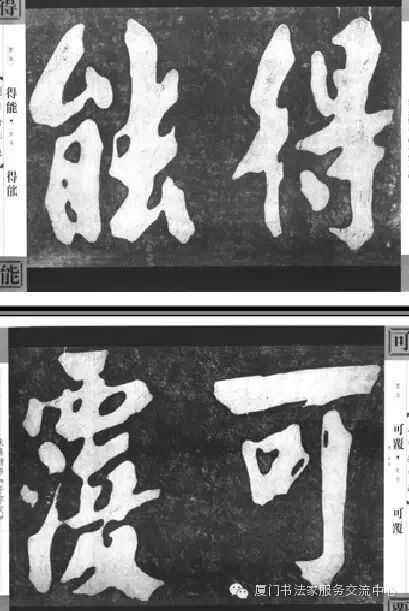 得
得能
得能
能
得能
可
可覆
可覆
可覆
厦门书法家服务交流中心